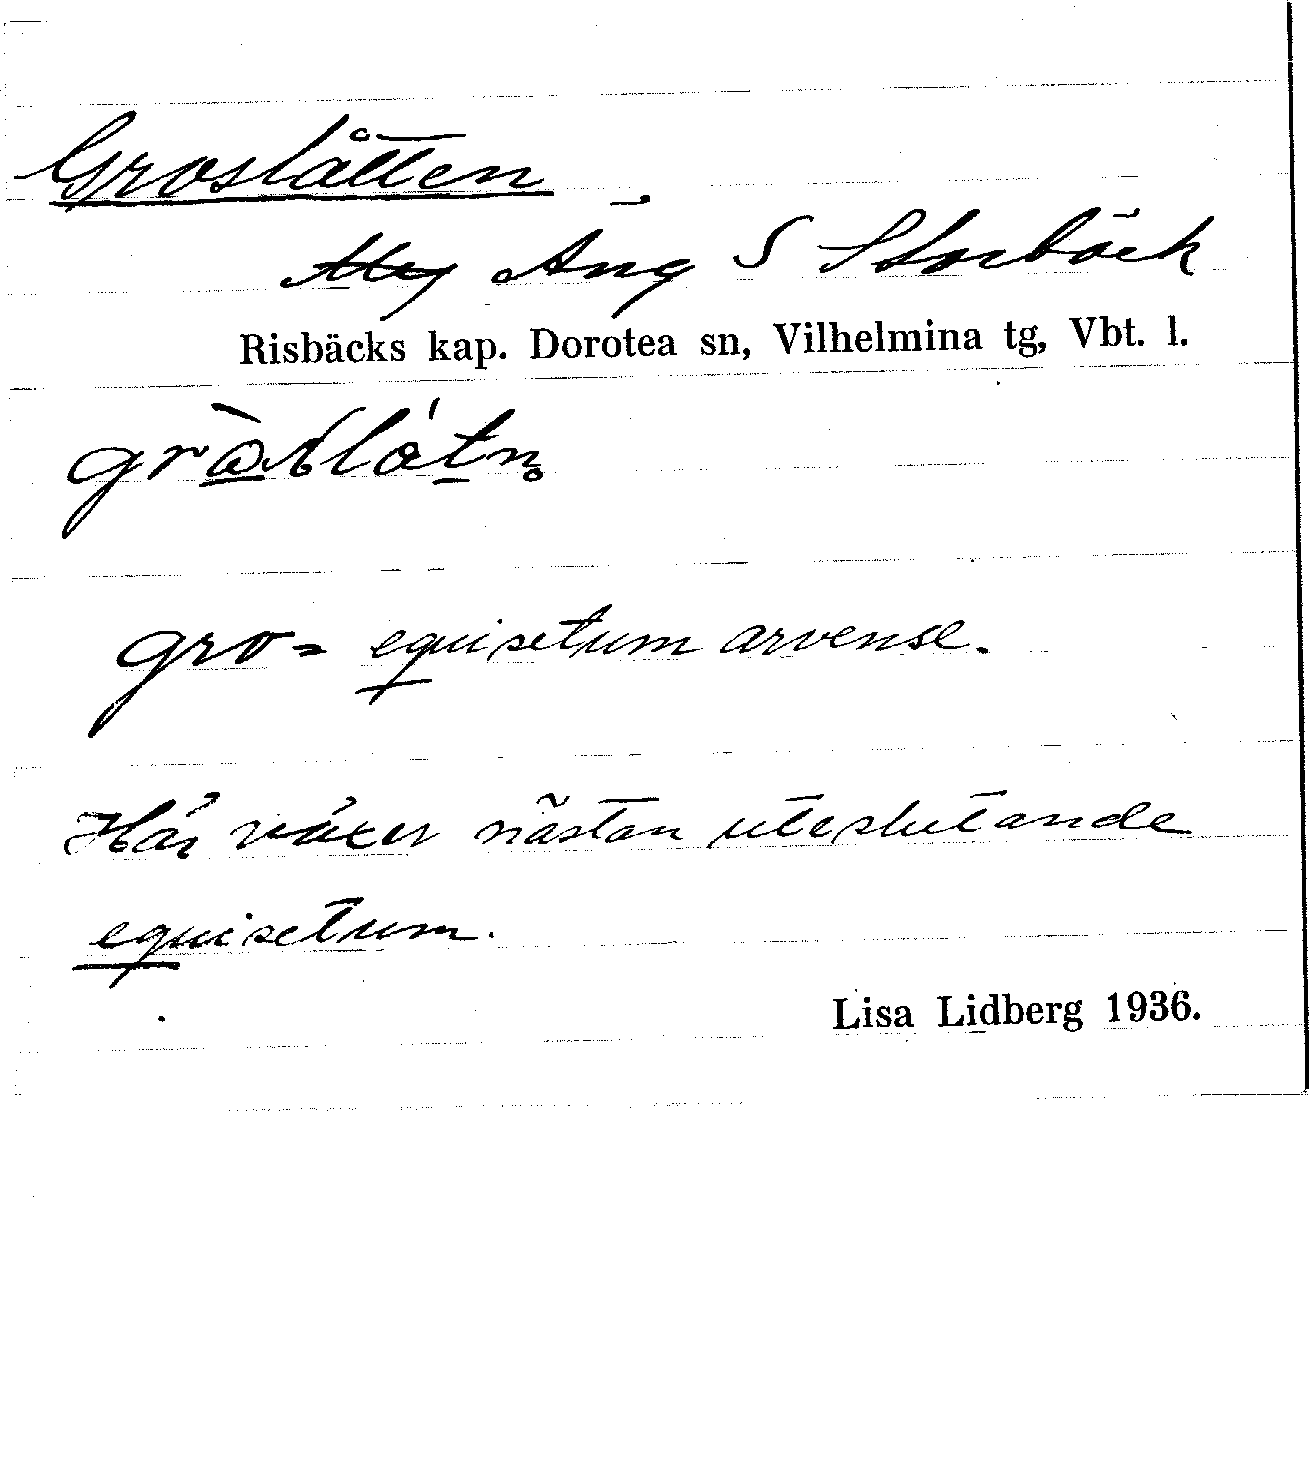 Groslåtten
Äng S Storbäck
Risbäcks kap. Dorotea sn, Vilhelmina tg, Vbt. l.
gro = equisetum arvense.
Här växer nästan uteslutande
equisetum.
Lisa Lidberg 1936.